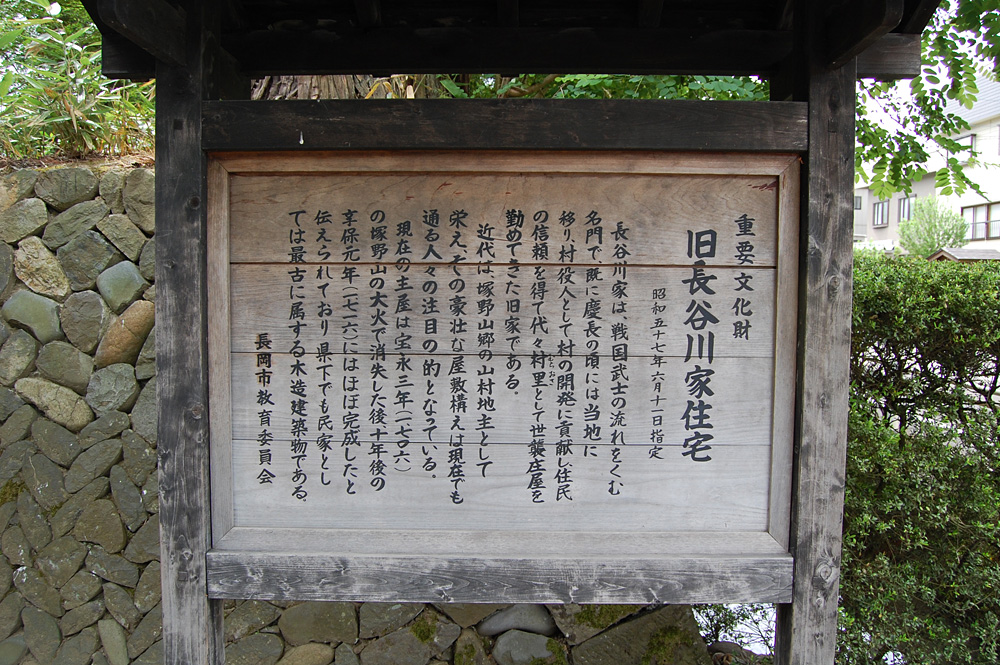 重要文化財
旧長谷川家住宅
昭和五十七年六月十一日指定
長谷川家は、戦国武士の流れをくむ
名門で、既に慶長の頃には当地に
移り村役人として村の開発に貢献し住民
の信頼を得て代々村里として世襲庄屋を
むらおさ
勤めてきた旧家である。
近代は、塚野山郷の山村地主として
栄え、その豪壮な屋敷構えは現在でも
通る人々の注目の的となっている。
現在の主屋は宝永三年(一七〇六)
の塚野山の大火で消失した後十年後の
享保元年(一七一六)にはほぼ完成したと
伝えられており県下でも民家とし
ては最古に属する木造建築物である。
長岡市教育委員会